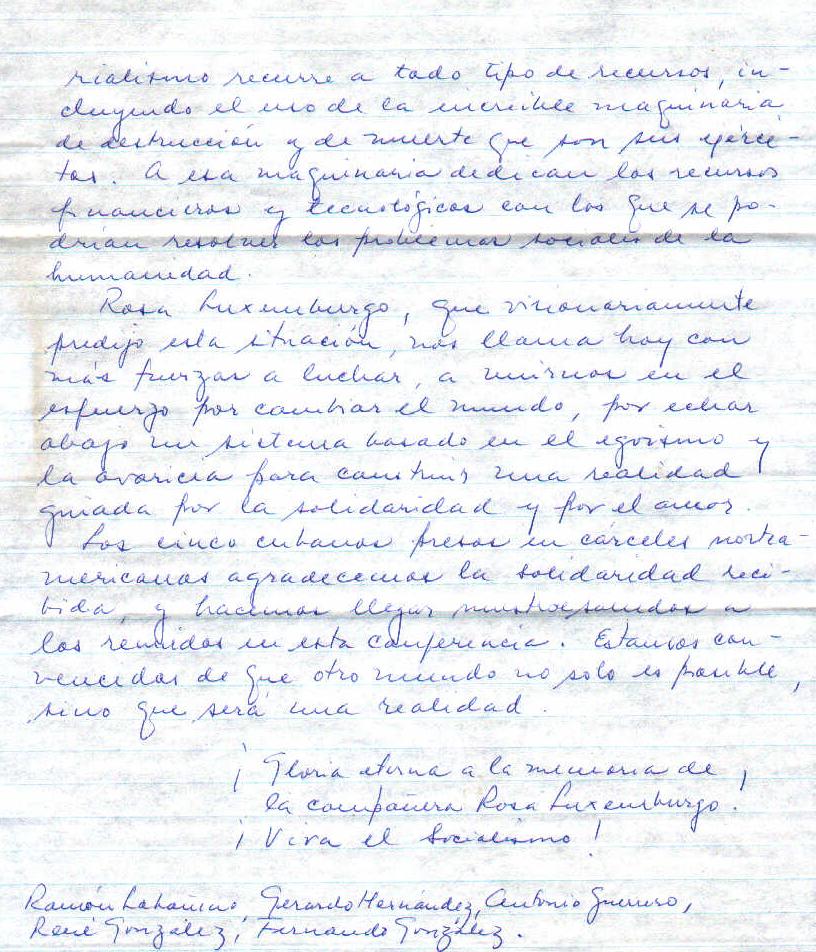 rialismo recurre a todo tipo de recursos, in-
cluyendo el uso de la increíble maquinaria
de destrucción y de muerte que son sus ejérci-
tos. A esa maquinaria dedican los recursos
financieros y tecnológicos con los que se po-
drían resolver los problemas sociales de la
humanidad.
Rosa Luxemburgo, que visionariamente
predijo esta situación, nos llama hoy con
más fuerzas a luchar, a unirnos en el
esfuerzo por cambiar el mundo, por echar
abajo un sistema basado en el egoísmo y
la avaricia para construir una realidad
guiada por la solidaridad y por el amor.
Los cinco cubanos presos en cárceles nortea-
mericanas agradecemos la solidaridad reci-
bida, y hacemos llegar nuestros saludos a
los reunidos en esta conferencia. Estamos con-
vencidos de que otro mundo no solo es posible,
sino que será una realidad.
¡Gloria eterna a la memoria de
la compañera Rosa Luxemburgo!
¡Viva el Socialismo!
Ramón Labañino, Gerardo Hernández, Antonio Guerrero,
René González, Fernando González.